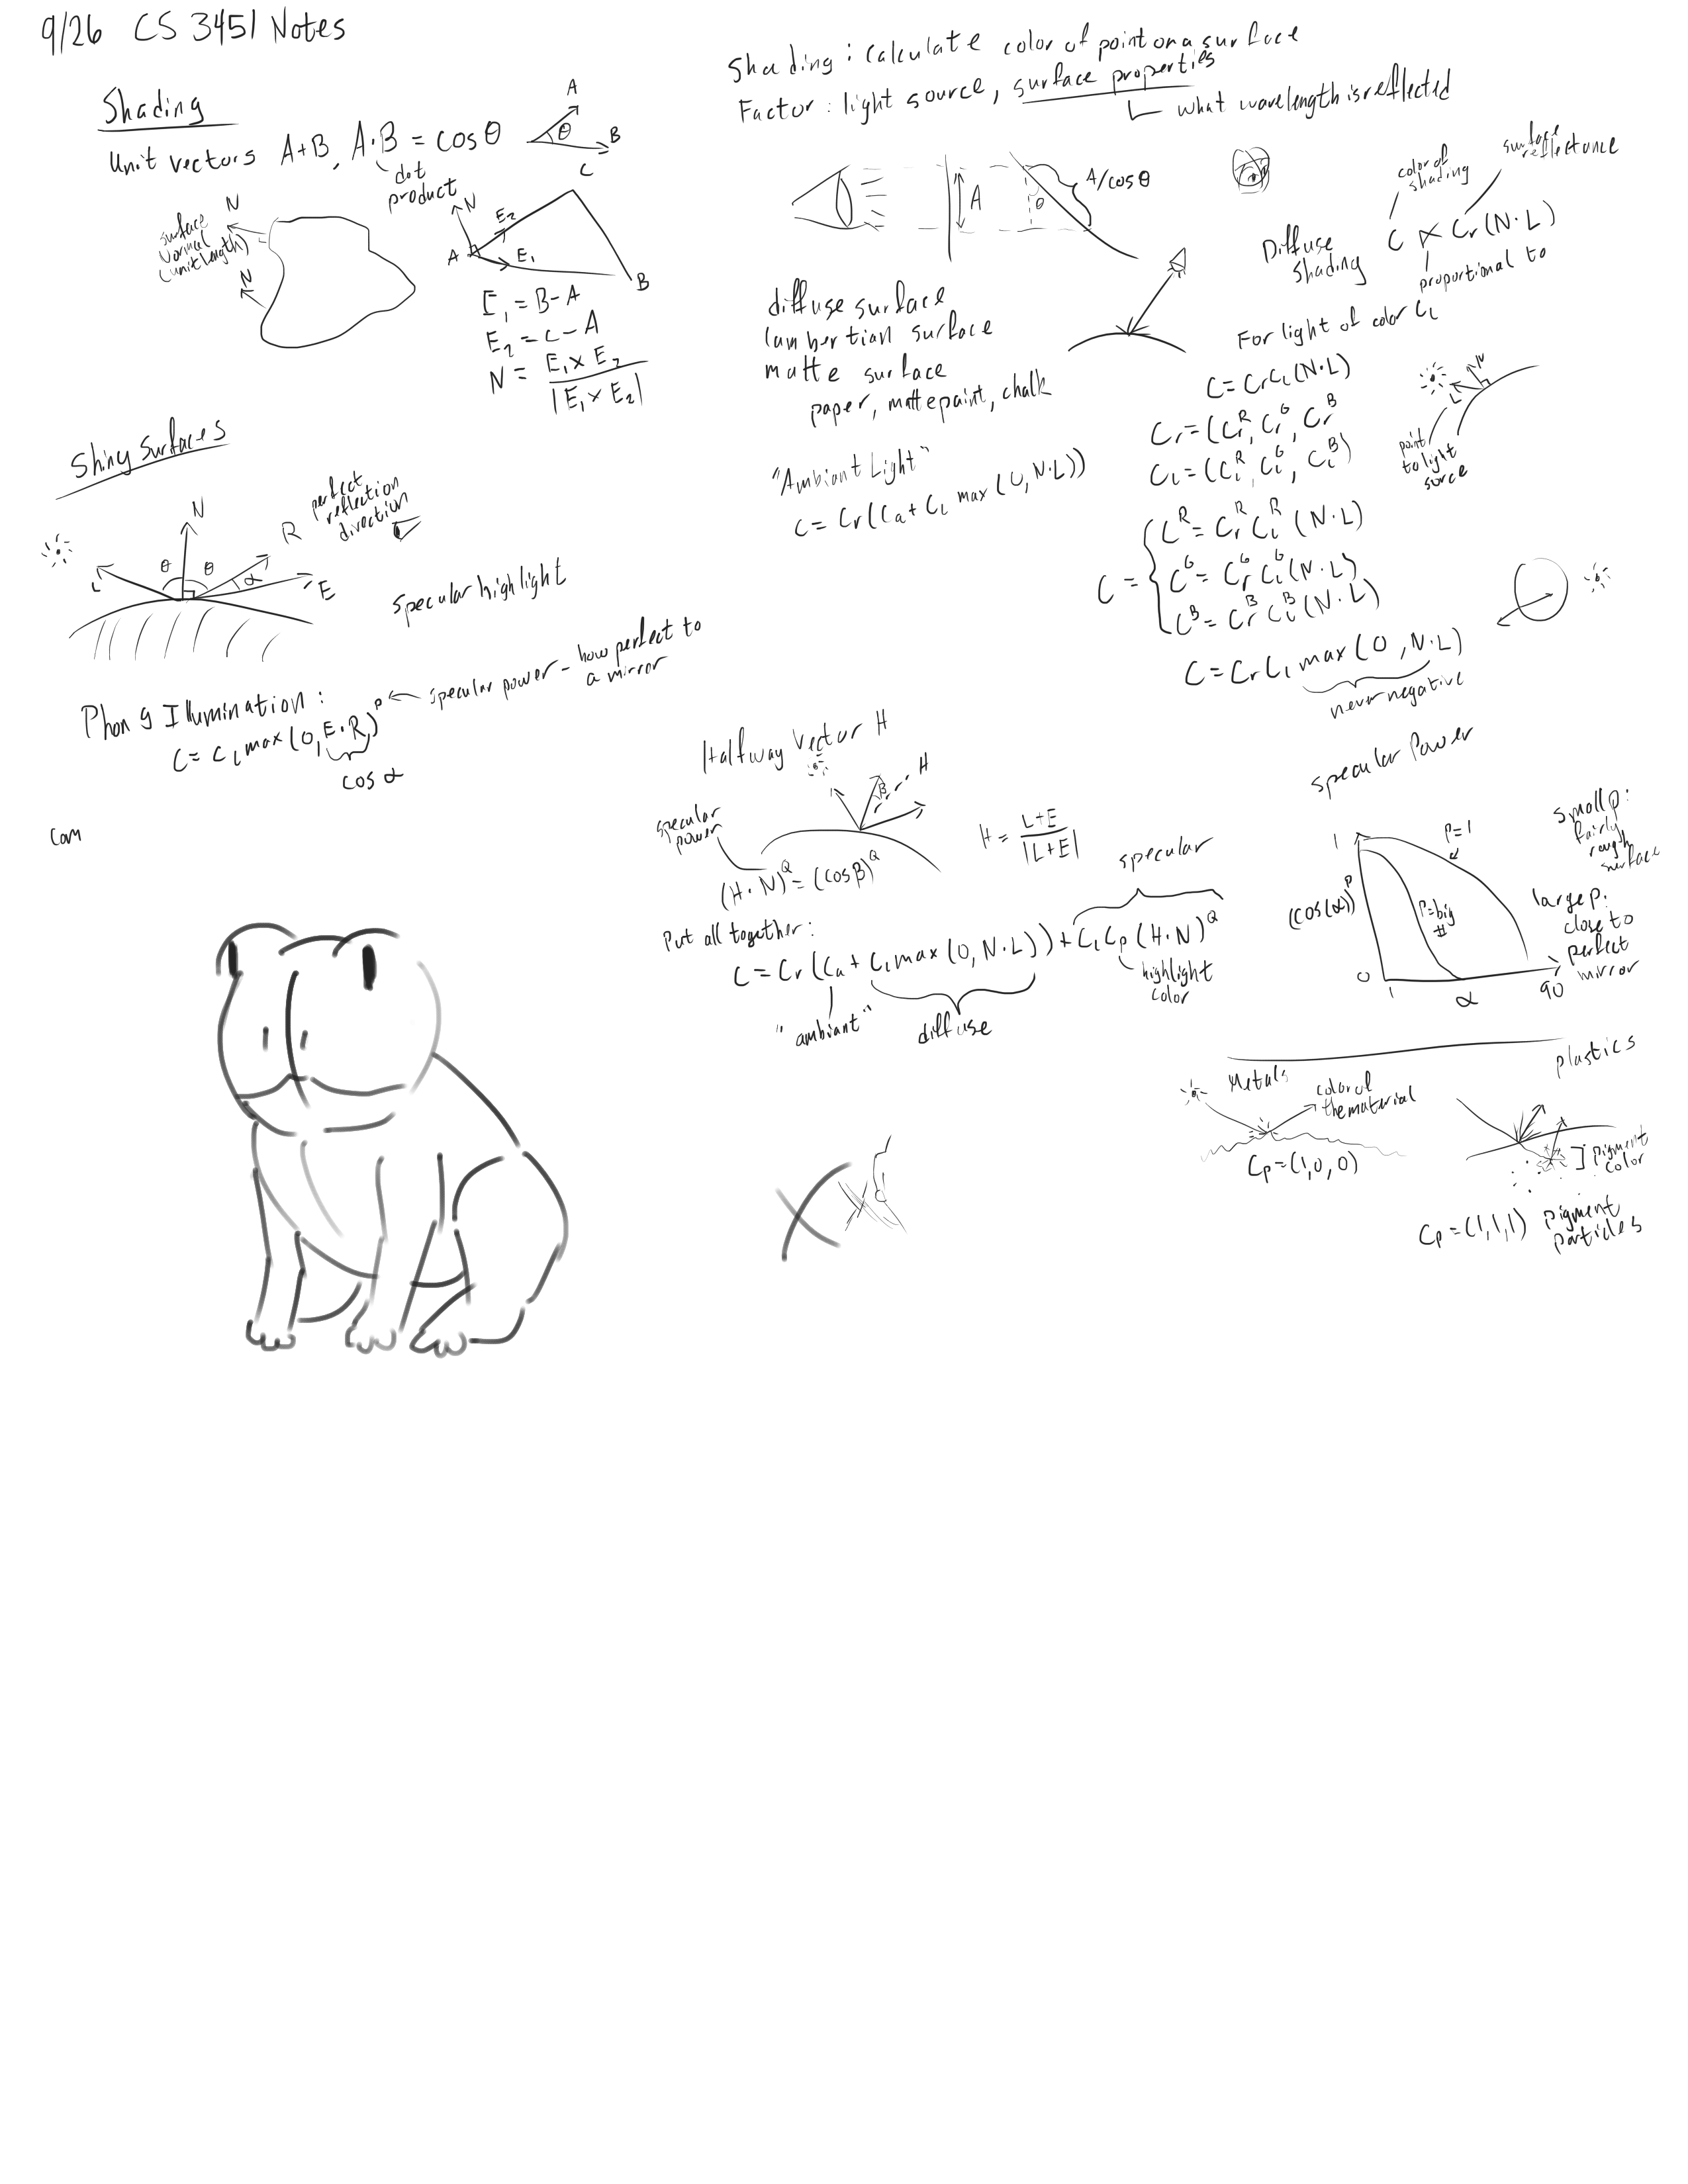 9/26 CS 3451 Notes
Shading
Unit vectors A+B, A·B = cosθ
dot
product
A
θ
B
surface
normal
(unit length)
N
N
N
E₂
C
A
E₁
B
E₁ = B-A
E₂ = C-A
N = E₁ × E₂ / |E₁ × E₂|
Shiny Surfaces
N
R
perfect
reflection
direction
L
θ θ
α
E
specular highlight
Phong Illumination:
C = C_L max(0, E·R)^P ← specular power - how perfect to
a mirror
cos α
Com
Shading: calculate color of point on a surface
Factor: light source, surface properties
what wavelength is reflected
A
θ
A/cosθ
diffuse surface
lambertian surface
matte surface
paper, matte paint, chalk
"Ambiant Light"
C = Cr(Ca + C_L max(0, N·L))
color of
shading
surface
reflectance
Diffuse
Shading
C ∝ Cr(N·L)
proportional to
For light of color C_L
C = CrC_L(N·L)
Cr = (Cr^R, Cr^G, Cr^B
C_L = (C_L^R, C_L^G, C_L^B)
N
L
point
to light
surce
C = { C^R = Cr^R C_L^R (N·L)
C^G = Cr^G C_L^G (N·L)
C^B = Cr^B C_L^B (N·L)
C = CrC_L max(0, N·L)
never negative
Halfway Vector H
β
H
specular
power
(H·N)^Q = (cosβ)^Q
H = L+E / |L+E|
Put all together:
specular
C = Cr(Ca + C_L max(0, N·L)) + C_L Cp (H·N)^Q
"ambiant"
diffuse
highlight
color
specular Power
1
(cos(α))^P
P=1
P=big
#
0
1
α
90
small p:
fairly
rough
surface
large p:
close to
perfect
mirror
Metals
color of
the material
Cp = (1,0,0)
plastics
pigment
color
Cp = (1,1,1)
pigment
particles